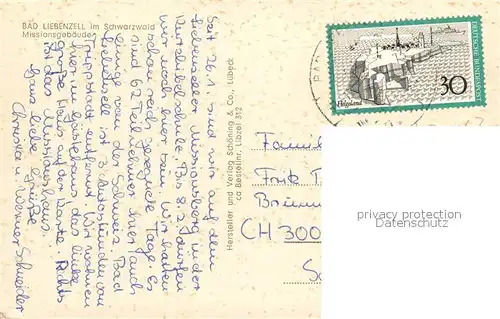 BAD LIEBENZELL im Schwarzwald
Missionsgebäude
Seit 26.1. sind wir auf dem
Liebenzeller Missionsberg in der
Kurzbibelschule. Bis 8.2. dürfen
wir noch hier sein. Wir hatten
schon reich gesegnete Tage. Es
sind 65 Teilnehmer hier, auch
einige von der Schweiz. Bad
Liebenzell ist 3 Autostunden von
Trippstadt entfernt. Wir wohnen
hier im Gästehaus das linke
große Haus auf der Karte. Rechts
ist das Missionshaus.
Ganz liebe Grüße
Christa u. Werner Schneider
Hersteller und Verlag Schöning & Co., Lübeck
ca Bestellnr. Libzell 312
DEUTSCHE BUNDESPOST
Helgoland
30
Famil
Fritz
Brünn
CH 300
privacy protection
Datenschutz